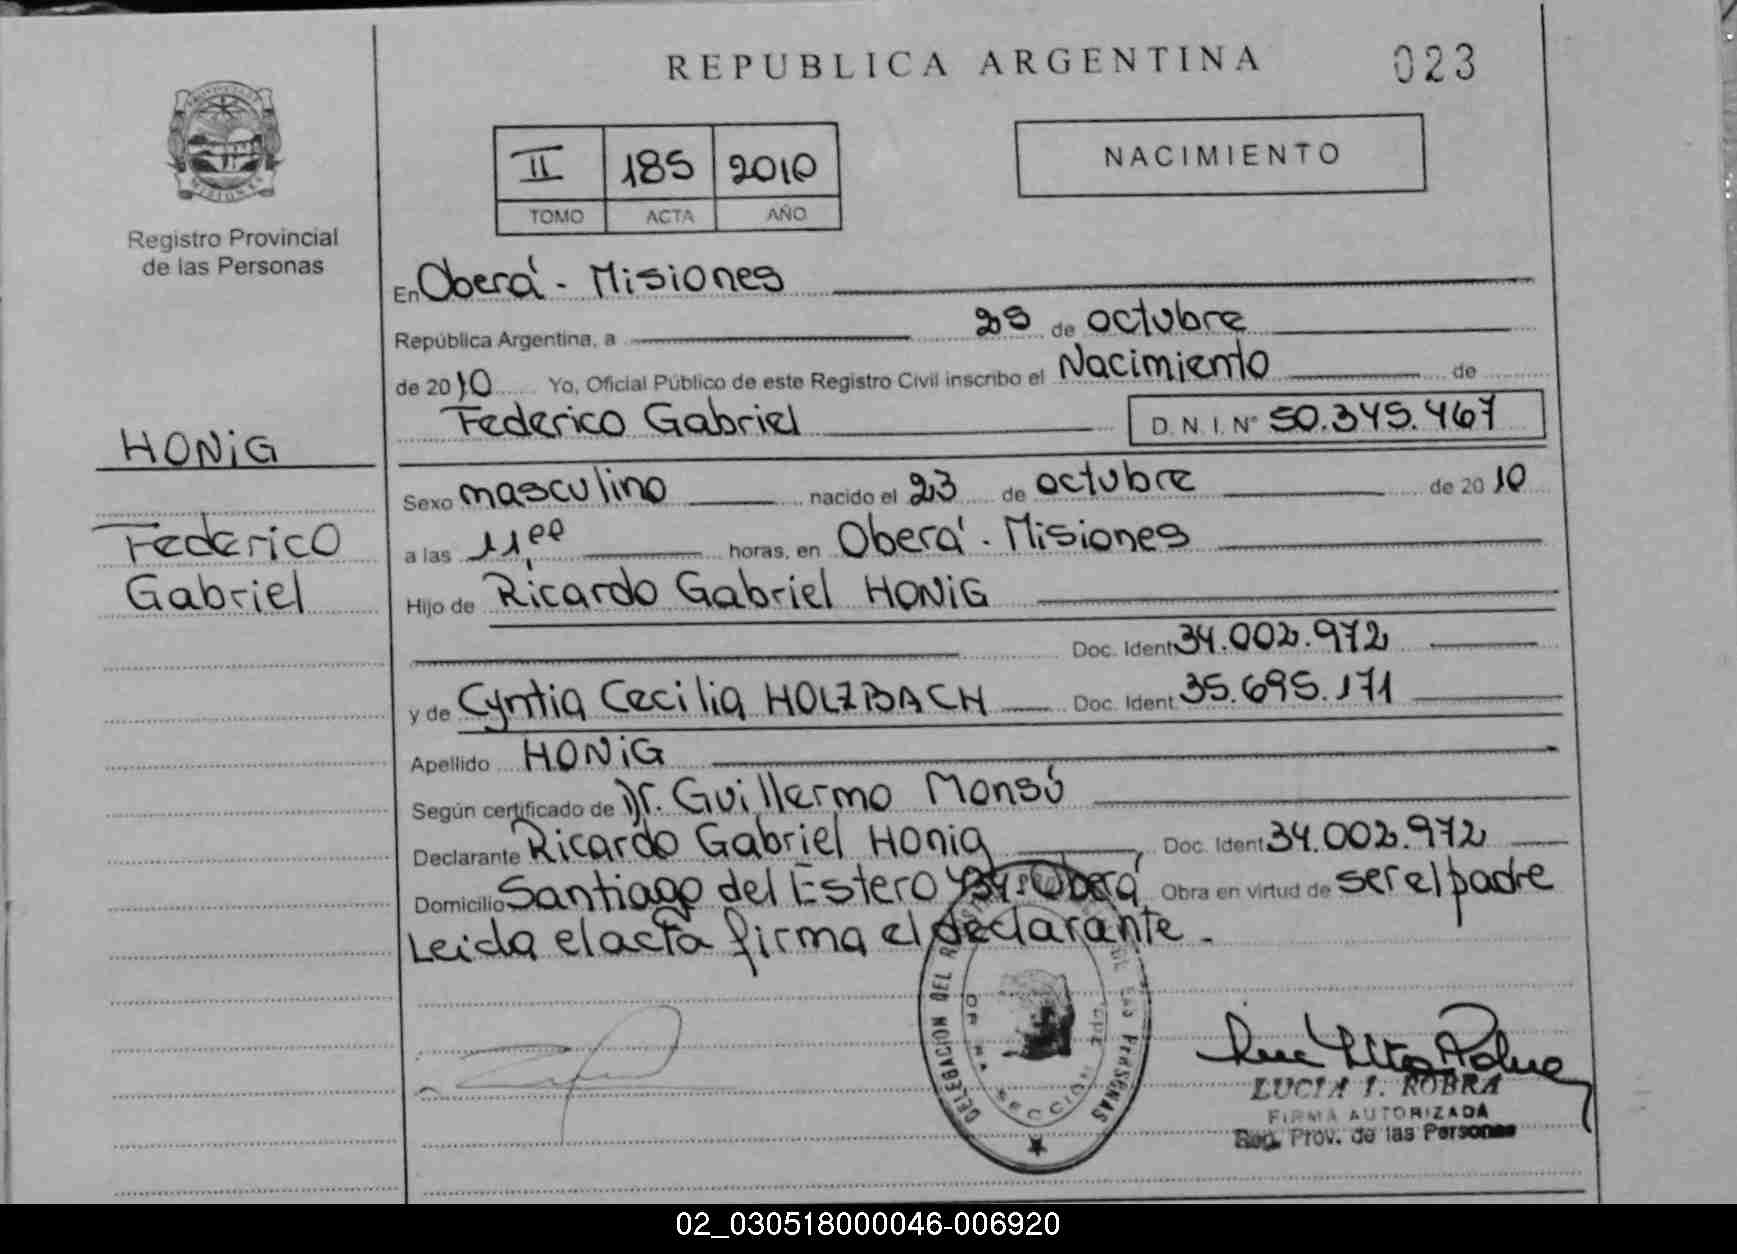 REPUBLICA ARGENTINA
023
II 185 2010
TOMO ACTA AÑO
NACIMIENTO
Registro Provincial
de las Personas
HONiG
Federico
Gabriel
En Oberá - Misiones
República Argentina, a de octubre
de 2010 Yo, Oficial Público de este Registro Civil inscribo el Nacimiento de
Federico Gabriel D.N.I. Nº 50.345.467
Sexo masculino nacido el 23 de octubre de 2010
a las 11,00 horas, en Oberá - Misiones
Hijo de Ricardo Gabriel HONiG
Doc. Ident 34.002.972
y de Cyntia Cecilia HOLZBACH Doc. Ident. 35.695.171
Apellido HONiG
Según certificado de Dr. Guillermo Monsú
Declarante Ricardo Gabriel Honig Doc. Ident 34.002.972
Domicilio Santiago del Estero Oberá Obra en virtud de ser el padre
Leida el acta firma el declarante -
DELEGACION DEL DE LAS PERSONAS
SECCION
LUCIA I. ROBRA
FIRMA AUTORIZADA
Reg. Prov. de las Personas
02_030518000046-006920